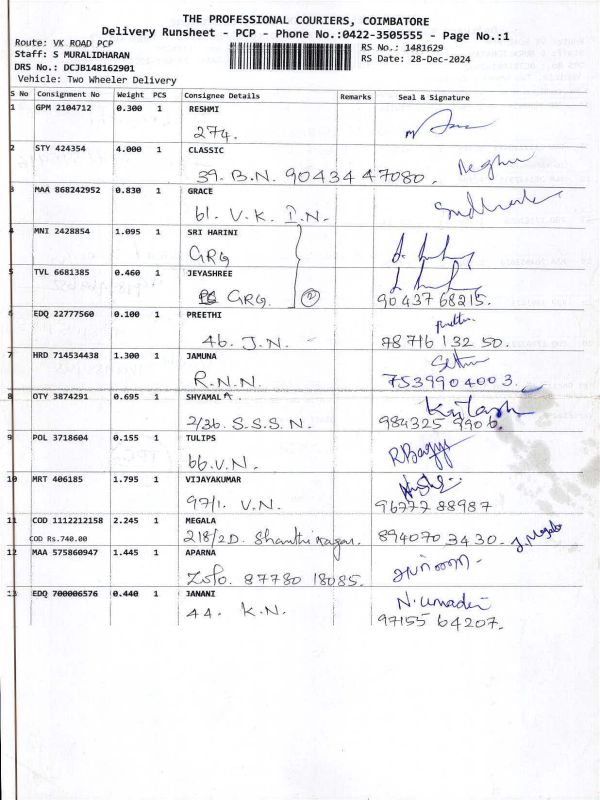 THE PROFESSIONAL COURIERS, COIMBATORE
Delivery Runsheet - PCP - Phone No.:0422-3505555 - Page No.:1
Route: VK ROAD PCP
Staff: S MURALIDHARAN
DRS No.: DCJB148162901
Vehicle: Two Wheeler Delivery
RS No.: 1481629
RS Date: 28-Dec-2024
S No Consignment No Weight PCS Consignee Details Remarks Seal & Signature
1 GPM 2104712 0.300 1 RESHMI
274.
2 STY 424354 4.000 1 CLASSIC
39. B.N. 90434 47080. Meghu
3 MAA 868242952 0.830 1 GRACE
61. V.K. I.N.
4 MNI 2428854 1.095 1 SRI HARINI
GRG
5 TVL 6681385 0.460 1 JEYASHREE
GRG. 2 90437 68215.
6 EDQ 22777560 0.100 1 PREETHI
46. J.N. - 78716 132 50.
7 HRD 714534438 1.300 1 JAMUNA
R.N.N. 7539904003.
8 OTY 3874291 0.695 1 SHYAMALA Kailash
2/36. S.S.S. N. 984325 9906.
9 POL 3718604 0.155 1 TULIPS
66.V.N.
10 MRT 406185 1.795 1 VIJAYAKUMAR
97/1. V.N. 96777 88987
11 COD 1112212158 2.245 1 MEGALA
COD Rs.740.00 218/2D. Shanthi Nagar. 894070 3430. J. Megala
12 MAA 575860947 1.445 1 APARNA
Zofo. 87780 18085.
13 EDQ 700006576 0.440 1 JANANI N. Umadevi
44. K.N. 97155 64207.